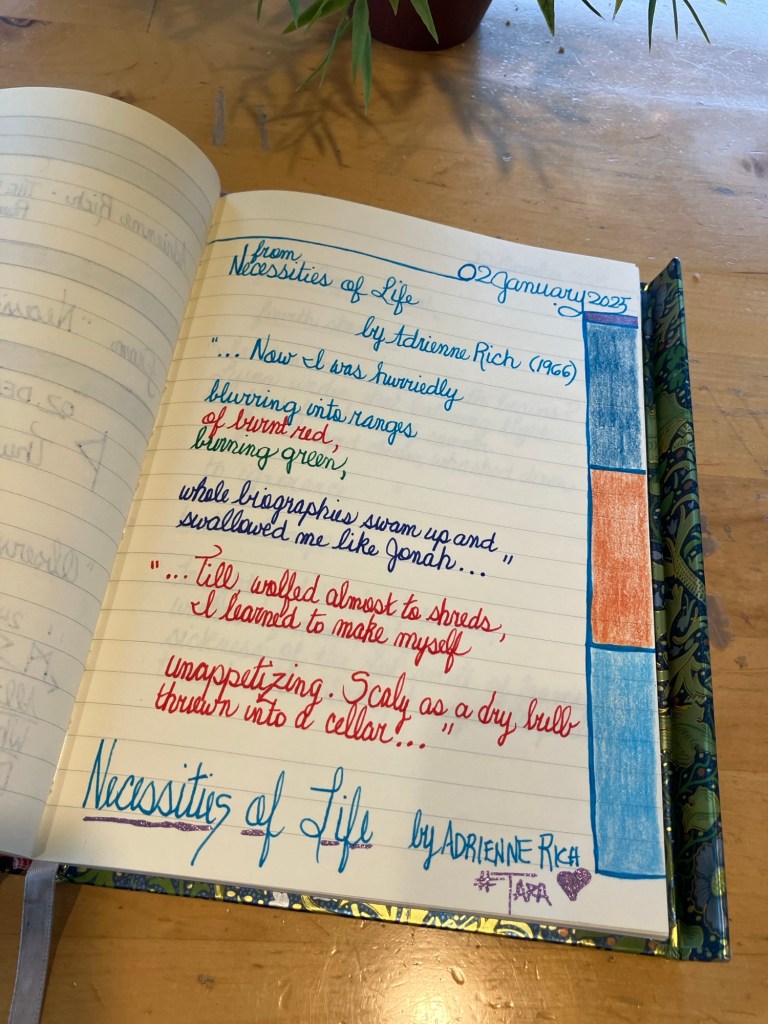 02 January 2025
from
Necessities of Life
by Adrienne Rich (1966)
"... Now I was hurriedly
blurring into ranges
of burnt red,
burning green,
whole biographies swam up and
swallowed me like Jonah..."
"... Till, wolfed almost to shreds,
I learned to make myself
unappetizing. Scaly as a dry bulb
thrown into a cellar..."
Necessities of Life
by ADRIENNE RICH
#TARA